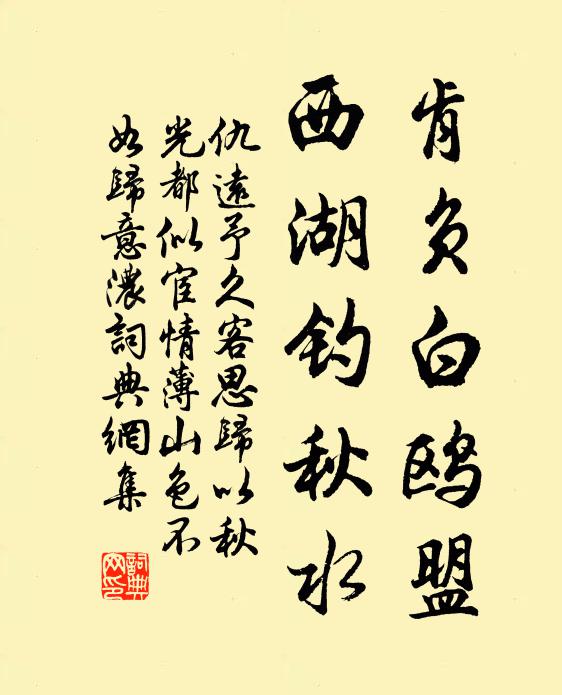 肯负白鸥盟
西湖钓秋水
仇遠予久客思歸以秋
光都似宦情薄山色不
如歸意濃詞典網集
詞典網印